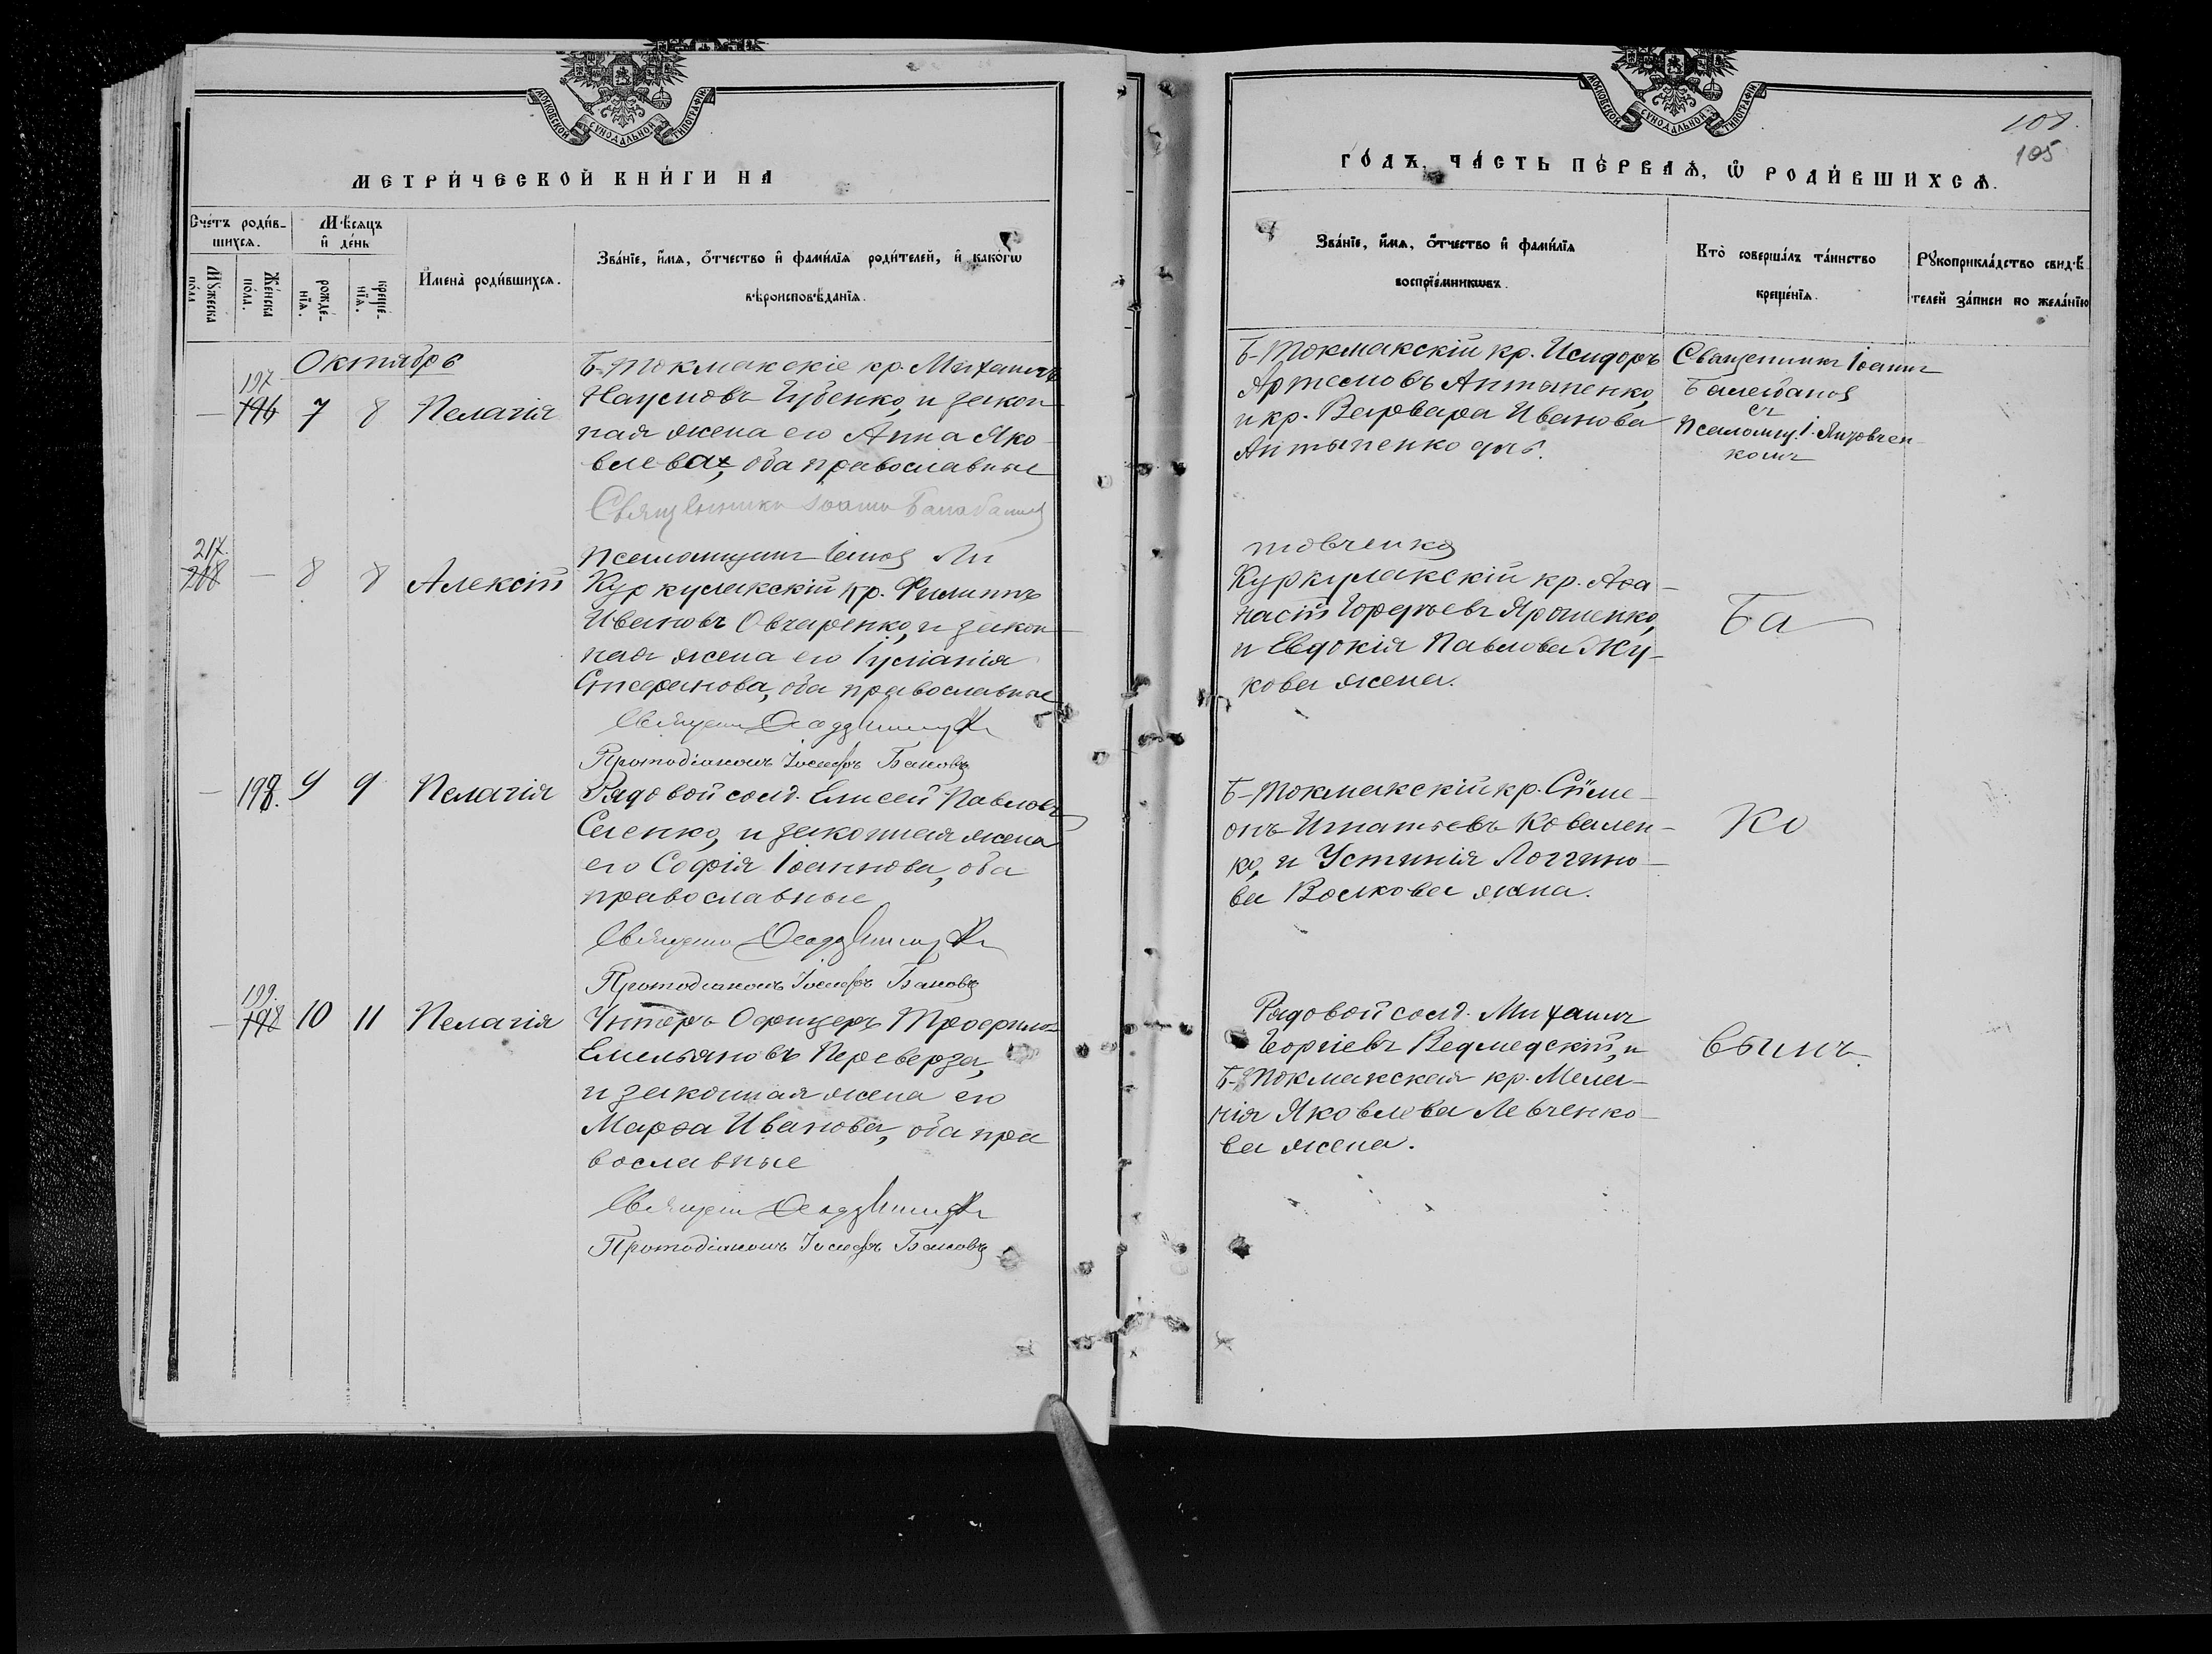 МОСКОВСКОЙ СѴНОДАЛЬНОЙ ТИПОГРАФІИ
МЕТРИ́ЧЕСКОЙ КНИ́ГИ НА
Счетъ роди́в-
шихся.
Мѣсяцъ
и҆ де́нь
Мꙋ́жеска
по́ла
Же́нска
по́ла.
рожде́-
нїя.
креще́-
нїя.
И҆мена̀ роди́вшихся.
Зва́нїе, и҆́мя, ѻ҆́тчество и҆ фами́лїя роди́телей, и҆ како́гѡ
вѣроисповѣ́данїя.
Октябрь
197
196 7 8 Пелагія
Б-Токмакскіе кр. Михаилъ
Наумовъ Губенко, и закон-
ная жена его Анна Яко-
влева, оба православные
Священникъ Іоаннъ Балабановъ
Псаломщикъ
217.
8 8 Алексій
Куркулакскій кр. Филиппъ
Ивановъ Овчаренко, и закон-
ная жена его Іуліанія
Стефанова, оба православные
Протодіаконъ Іосифъ Баковъ
198. 9 9 Пелагія
Рядовой солд. Елисей Павловъ
Саенко, и законная жена
его Софія Іоаннова, оба
православные
Протодіаконъ Іосифъ Баковъ
199.
198 10 11 Пелагія
Унтеръ Офицеръ Трофимъ
Емельяновъ Переверза,
и законная жена его
Марѳа Иванова, оба пра
вославные
Протодіаконъ Іосифъ Баковъ
МОСКОВСКОЙ СѴНОДАЛЬНОЙ ТИПОГРАФІИ
108.
105
ГО́ДЪ, ЧА́СТЬ ПЕ́РВАЯ, Ѡ҆ РОДИ́ВШИХСЯ.
Зва́нїе, и҆́мя, ѻ҆́тчество и҆ фами́лїя
воспрїе́мникѡвъ.
Кто̀ соверша́лъ та́инство
креще́нїя.
Рꙋкоприкла́дство свидѣ́-
телей за́писи по жела́нїю
Б-Токмакскій кр. Исидоръ
Артемовъ Антыпенко,
и кр. Варвара Иванова
Антыпенко дчь.
Священникъ Іоаннъ
Балабановъ
съ
псаломщ. І.
комъ
товченко
Куркулакскій кр. Аѳа-
насій Гордѣевъ Ярошенко,
и Евдокія Павлова Жу-
кова жена.
Ба
Б-Токмакскій кр. Сѵме-
онъ Игнатьевъ Ковален-
ко, и Устинія Логгино-
ва Волкова жена.
ко
Рядовой солд. Михаилъ
Георгіевъ Ведмедскій, и
Б-Токмакская кр. Мела-
нія Яковлева Левченко-
ва жена.
вымъ